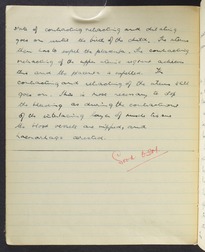 rate of contracting retracting and dilating
goes on until the birth of the child. The uterus
then has to expel the placenta. The contracting
retracting of the upper uterine segment achieves
this and the placenta is expelled. The
contracting and retracting of the uterus still
goes on. This is most necessary to stop
the bleeding, as during the contractions
of the interlacing layer of muscle fibres
the blood vessels are nipped, and
haemorrhage arrested.
Good